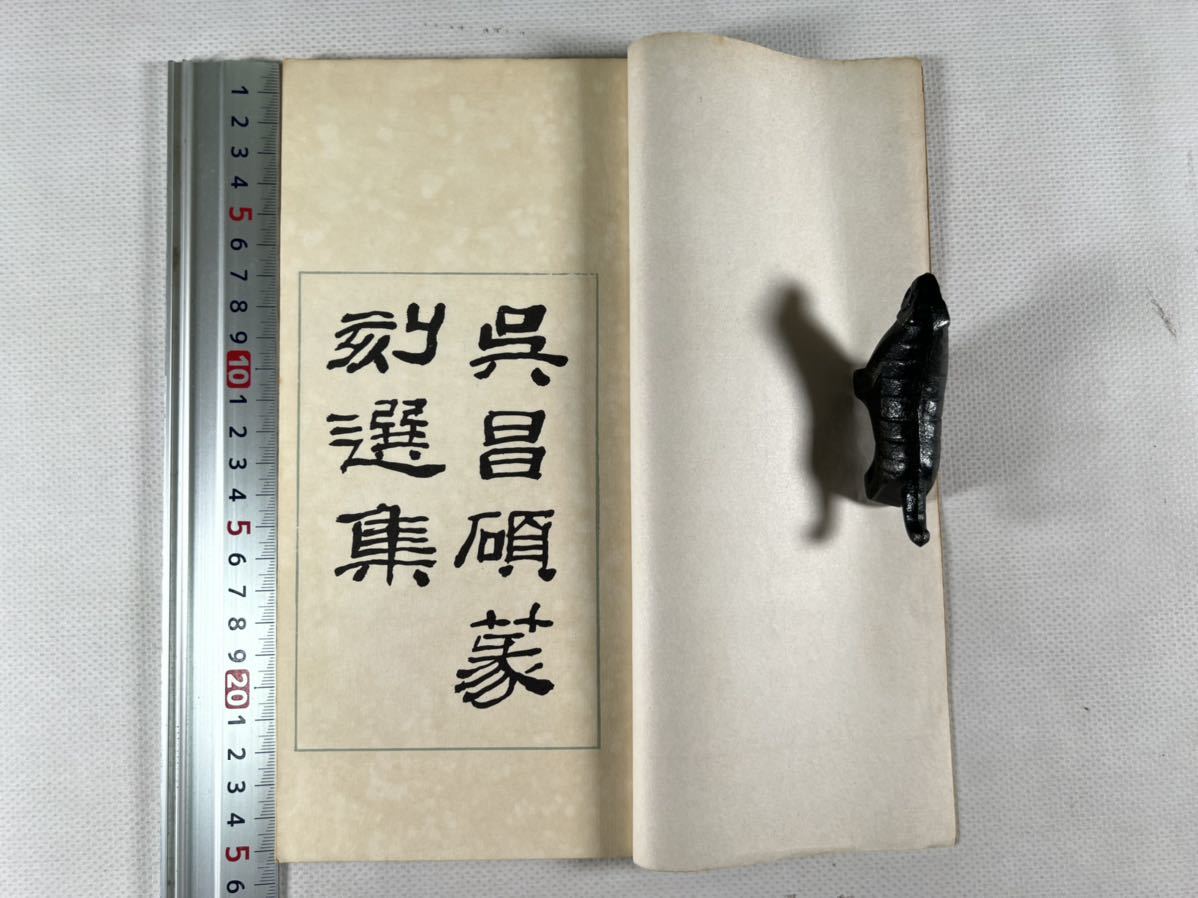 吳昌碩篆
刻選集
1
2
3
4
5
6
7
8
9
10
1
2
3
4
5
6
7
8
9
20
1
2
3
4
5
6